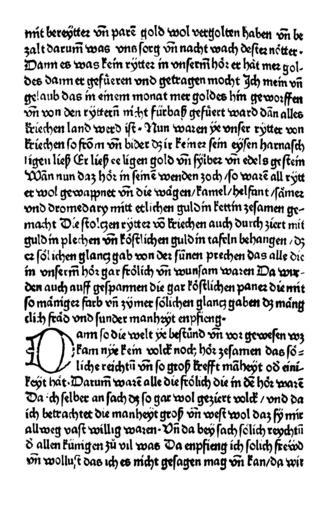 mit bereÿtter vñ parē gold wol vergolten haben vñ be
zalt darum̄ was vns sorg vñ nacht wach dester nötter.
Dann es was kein rÿtter in vnserm hör er hāt mer gol⸗
des dann er gefüeren vnd getragen mocht Ich mein vñ
gelaub das in einem monat mer goldes hin geworffen
vñ von den rÿttern nicht fürbaß gefüert ward dān alles
kriechen land werd ist. Nun waren ÿe vnser rÿtter von
kriechen so from̄ vñ bider dz ir keiner sein eÿsen harnasch
ligen ließ Er ließ ee ligen gold vñ sÿlber vñ edels gestein
Wān nun daz hör in seinē wenden zoch/ so warē all rÿtt
er wol gewappnet vñ die wägen/kamel/helfant/sāmer
vnd dromedarÿ mitt etlichen guldin kettin zesamen ge⸗
macht Die stolczen rÿtter vō kriechen auch durch ziert mit
guldin plechen vñ köstlichen guldin tafeln behangen/dz
er sölichen glancz gab von der sünen prechen das alle die
in vnserm hör gar frölich vñ wunsam waren Da wur⸗
den auch auff gespannen die gar köstlichen paner die mit
so māniger farb vñ zÿmer sölichen glancz gaben dz māng
lich fräd vnd sunder manheÿt enpfieng.
Dann so die welt ÿe bestünd vñ vor gewesen wz
kam nÿe kein volck noch hör zesamen das sö⸗
liche reichtū vñ so groß krefft māheÿt od eini⸗
keÿt hāt. Darum̄ warē alle die frölich die in dē hör warē
Da ich selber an sach dz so gar wol geziert volck/ vnd da
ich betrachtet die manheÿt groß vñ west wol daz sÿ mir
all weg vast willig waren. Vñ da beÿ sach sölich reÿchtū
d allen künigen zü vil was Da enpfieng ich solich frewd
vñ wollust das ich es nicht gesagen mag vñ kan/da wir